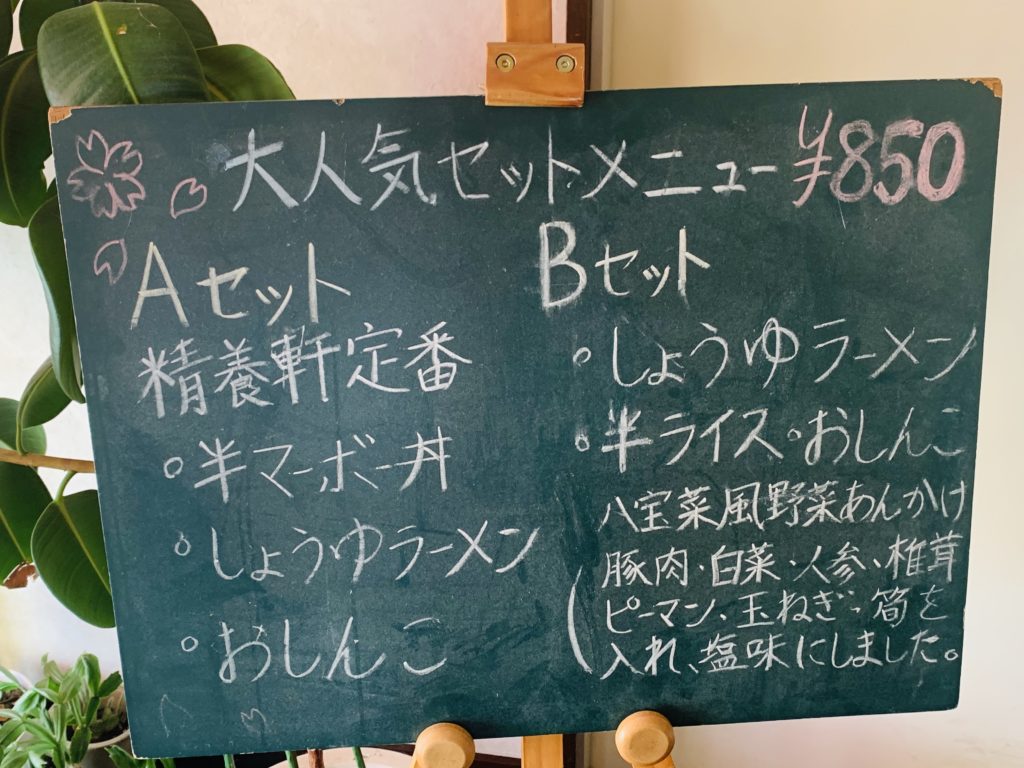 大人気セットメニュー ¥850
Aセット
精養軒定番
○半マーボー丼
○しょうゆラーメン
○おしんこ
Bセット
○しょうゆラーメン
○半ライス○おしんこ
八宝菜風野菜あんかけ
(豚肉・白菜・人参、椎茸
ピーマン、玉ねぎ、筍を
入れ、塩味にしました。